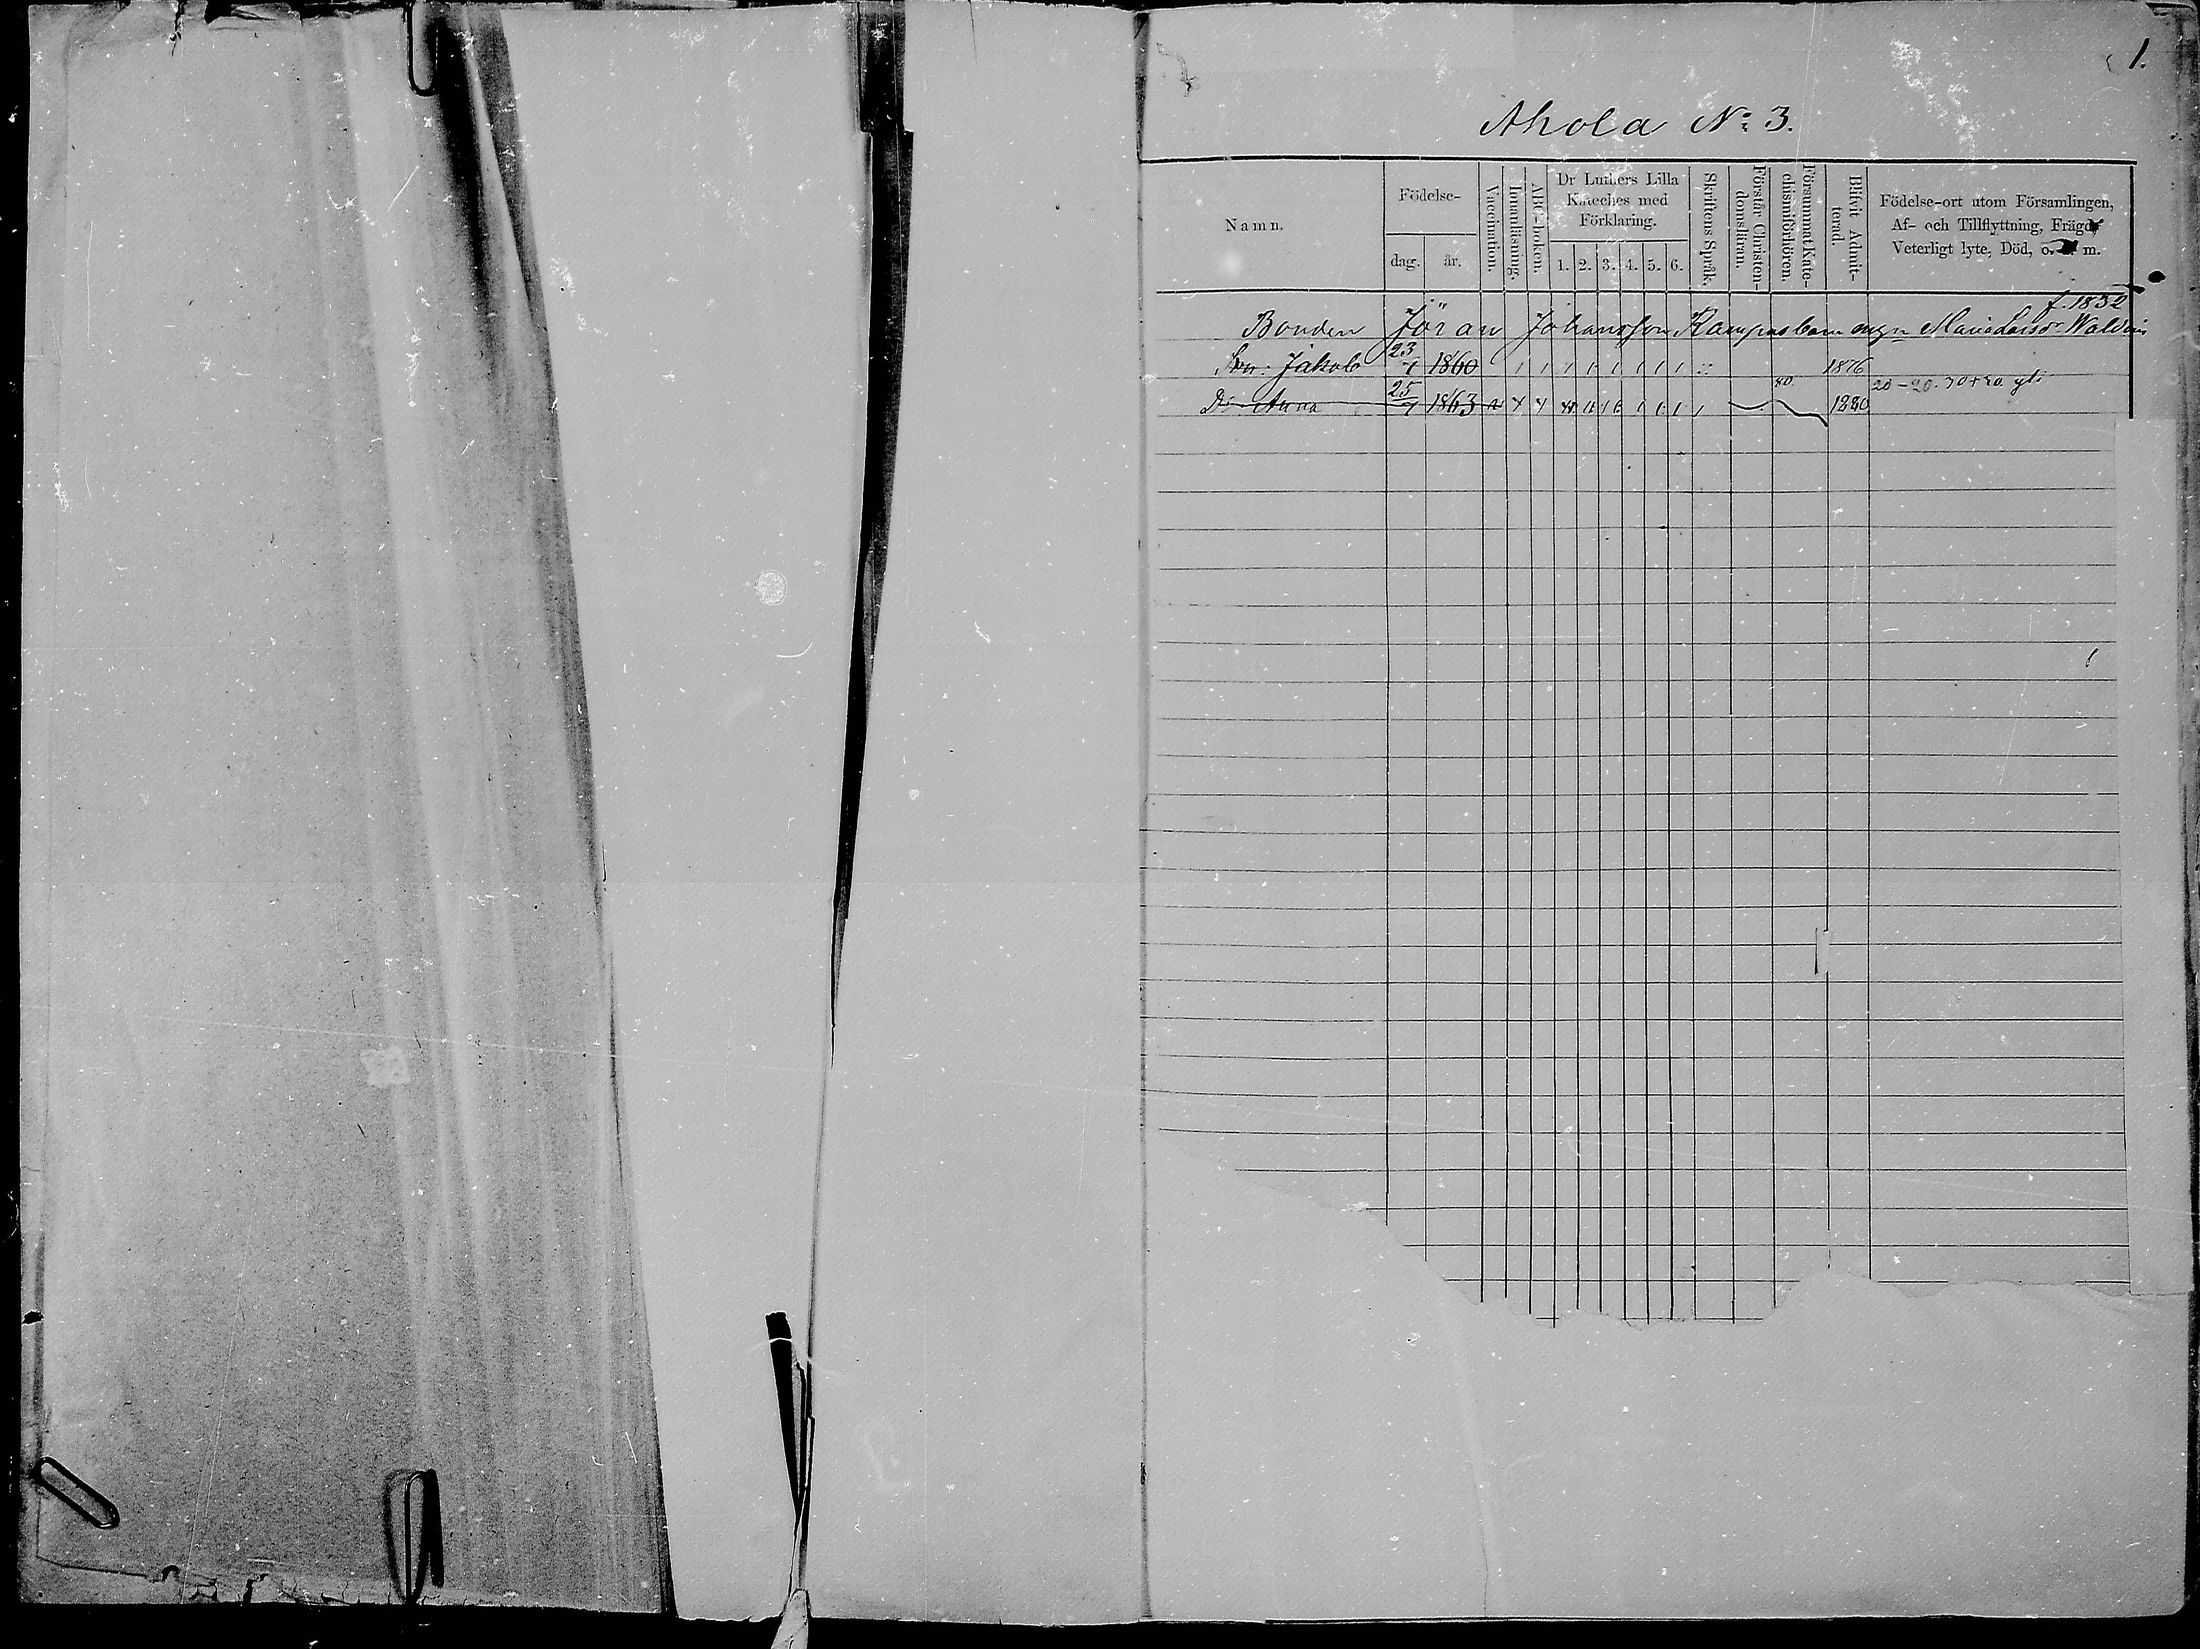 1.
Ahola No 3.
Namn.
Födelse-
dag. år.
Vaccination.
Innanläsning.
ABC-boken.
Dr Luthers Lilla
Kateches med
Förklaring.
1. 2. 3. 4. 5. 6.
Skriftens Språk.
Förstår Christen-
domsläran.
Försummat Kate-
chismiförhören.
Blifvit Admit-
terad.
Födelse-ort utom Församlingen,
Af- och Tillflyttning, Frägd,
Veterligt lyte, Död, o. m.
f. 1832
Bonden Jöran Johansson Kampas barn Maria
Son: Jakob 23/7 1860 1876
80. 20-20. 30+20
Dr Anna 25/7 1863 1880